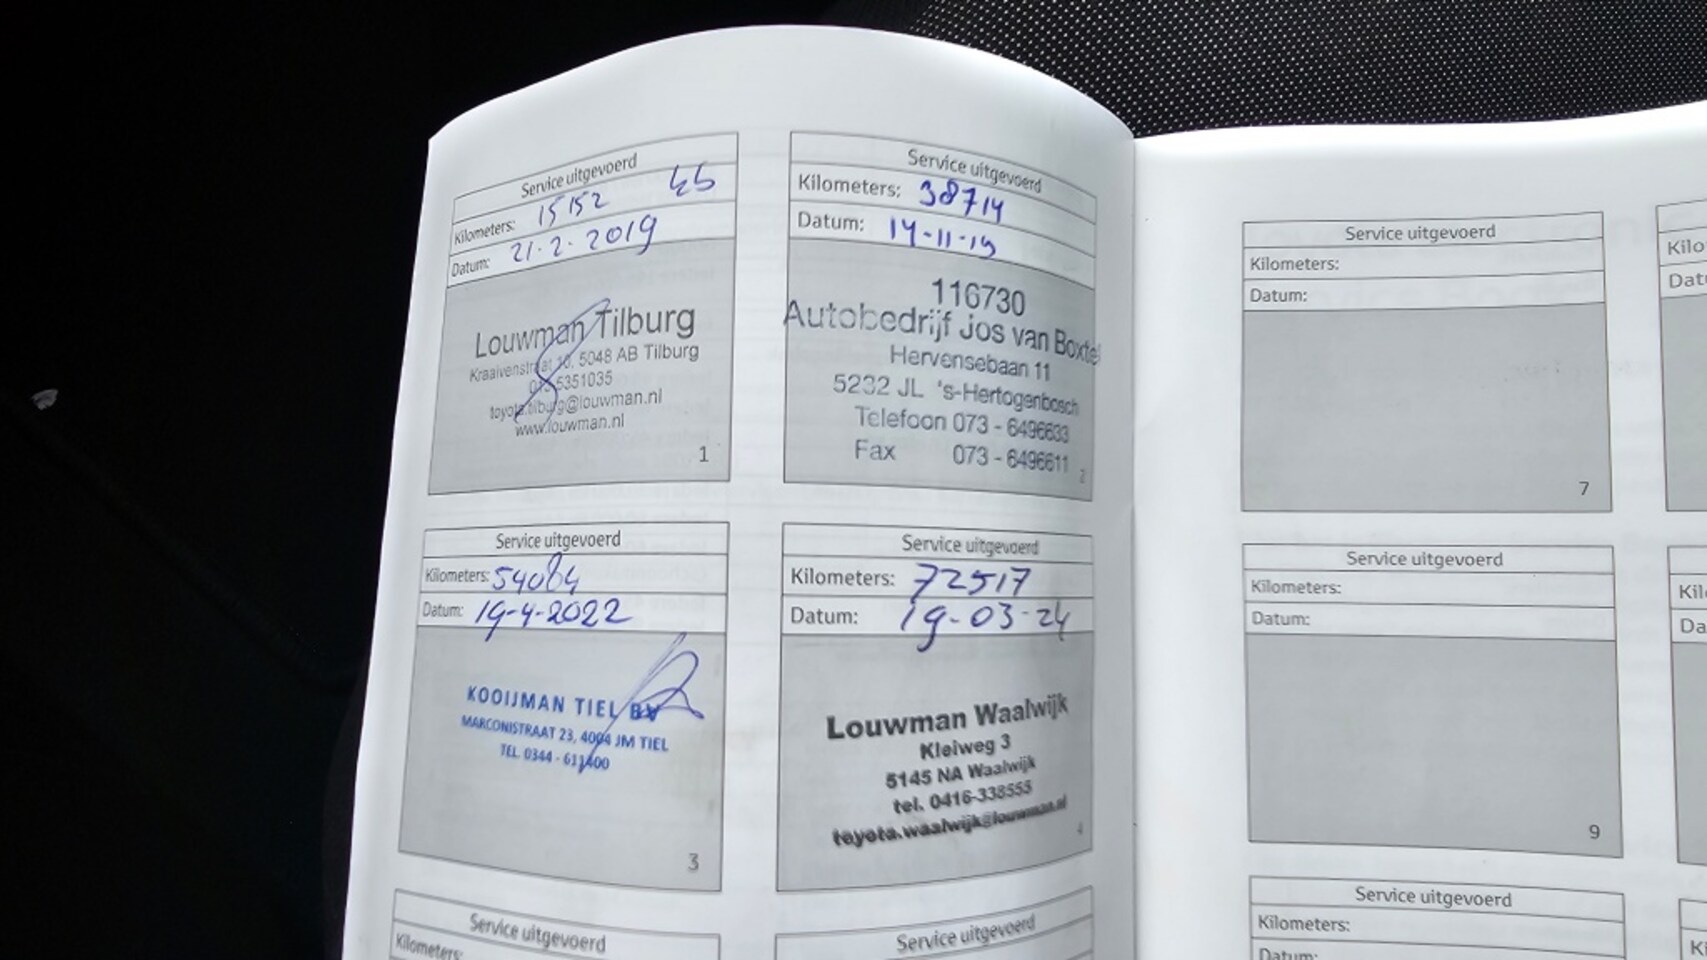 Service uitgevoerd
Kilometers: 15152 45
Datum: 21-2-2019
Louwman Tilburg
Kraaivenstraat 10, 5048 AB Tilburg
013 5351035
toyota.tilburg@louwman.nl
www.louwman.nl
1
Service uitgevoerd
Kilometers: 38714
Datum: 14-11-19
116730
Autobedrijf Jos van Boxtel
Hervensebaan 11
5232 JL 's-Hertogenbosch
Telefoon 073 - 6496633
Fax 073 - 6496611
2
Service uitgevoerd
Kilometers: 54084
Datum: 19-4-2022
KOOIJMAN TIEL BV
MARCONISTRAAT 23, 4004 JM TIEL
TEL. 0344 - 611400
3
Service uitgevoerd
Kilometers: 72517
Datum: 19-03-24
Louwman Waalwijk
Kleiweg 3
5145 NA Waalwijk
tel. 0416-338555
toyota.waalwijk@louwman.nl
4
Service uitgevoerd
Kilometers:
Service uitgevoerd
Service uitgevoerd
Kilometers:
Datum:
7
Kilo
Dat
Service uitgevoerd
Kilometers:
Datum:
9
Kil
Da
Service uitgevoerd
Kilometers:
Datum:
Ki